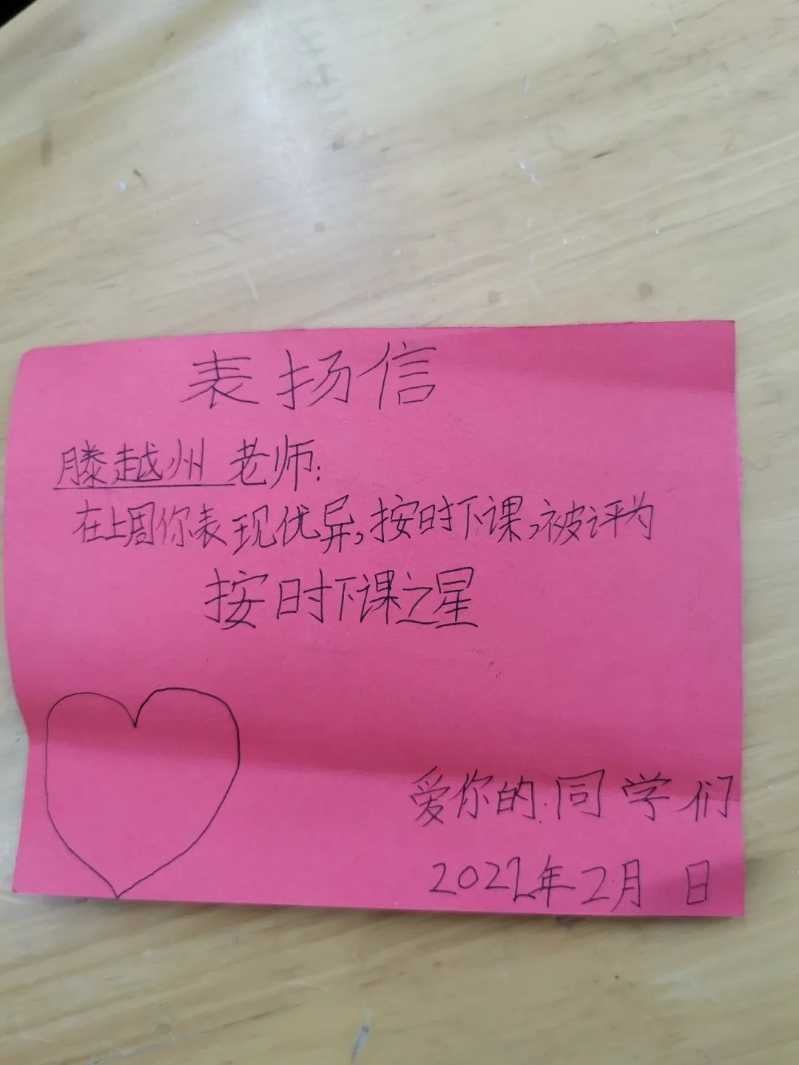 表扬信
滕越州 老师:
在上周你表现优异,按时下课,被评为
按时下课之星
爱你的同学们
2022年2月 日